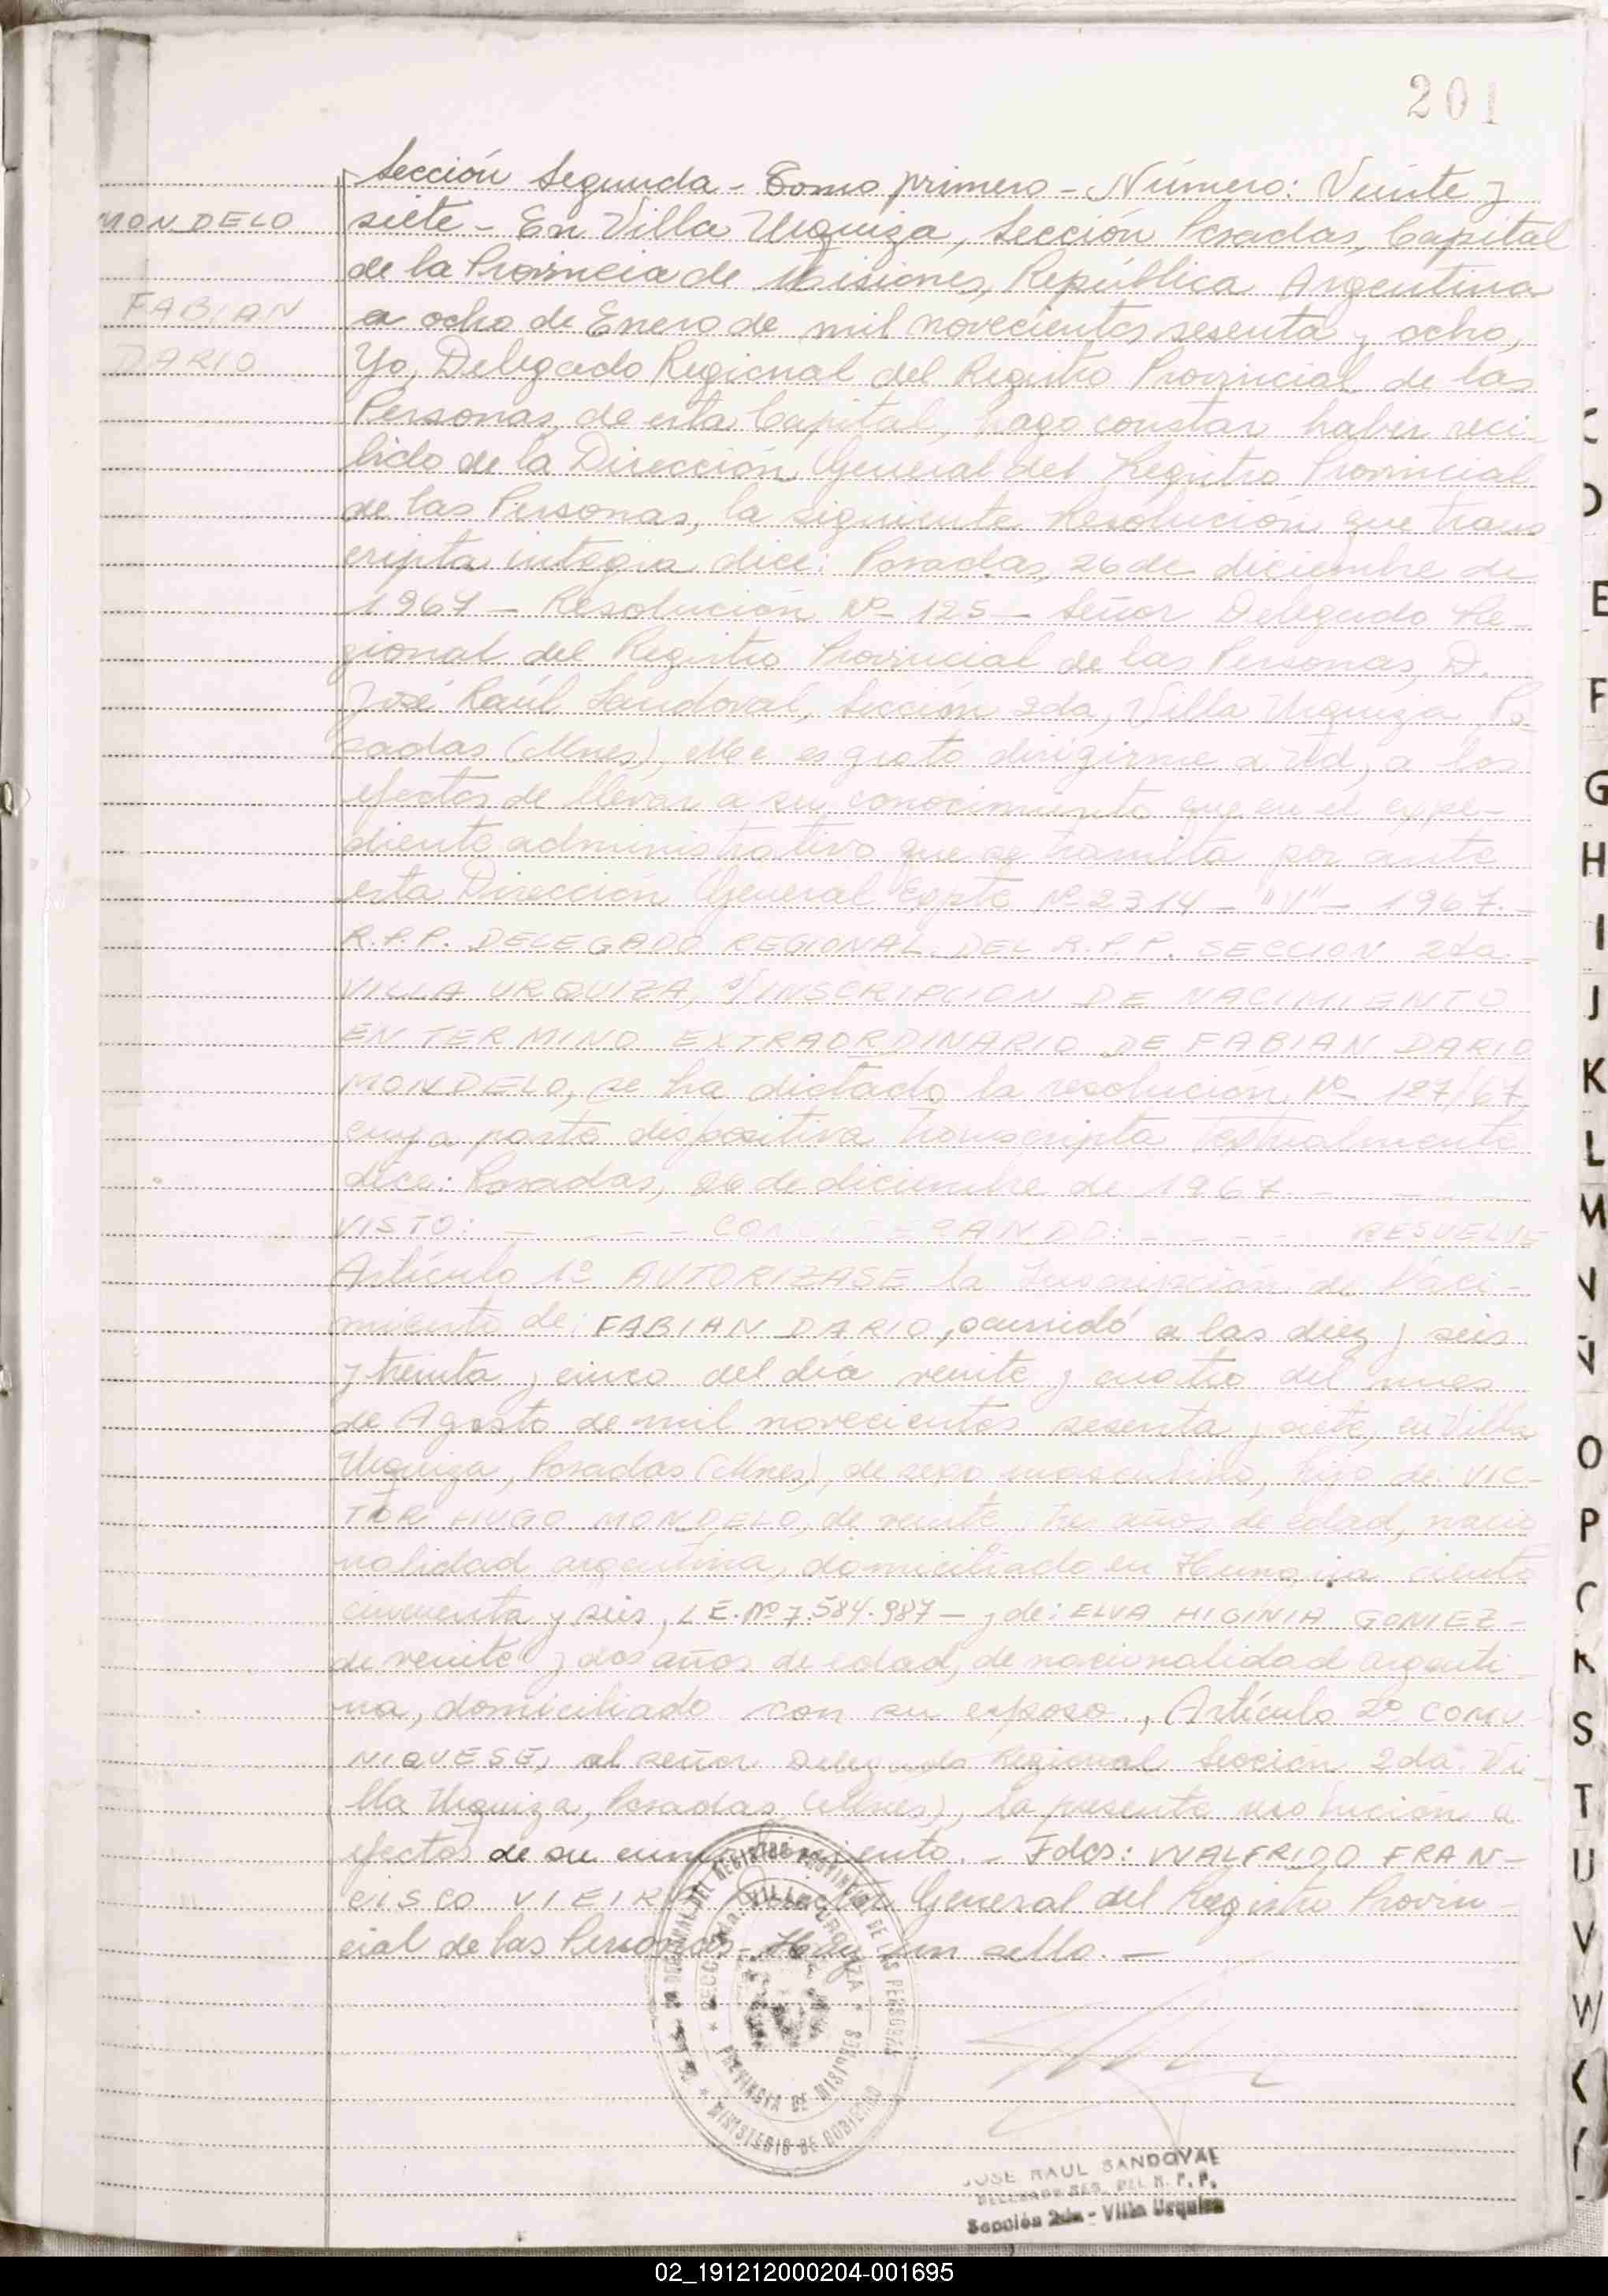 201
Sección Segunda - Tomo primero - Número: Veinte y
MONDELO
siete - En Villa Urquiza, Sección Posadas, Capital
de la Provincia de Misiones, República Argentina
FABIAN
a ocho de Enero de mil novecientos sesenta y ocho,
DARIO
Yo, Delegado Regional del Registro Provincial de las
Personas, de esta Capital, hago constar haber reci-
bido de la Dirección General del Registro Provincial
de las Personas, la siguiente Resolución que trans
cripta integra dice: Posadas, 26 de diciembre de
1967 - Resolución Nº 125 - Señor Delegado Re-
gional del Registro Provincial de las Personas, D.
José Raúl Sandoval, Sección 2da, Villa Urquiza, Po-
sadas (Mnes), Me es grato dirigirme a Ud, a los
efectos de llevar a su conocimiento que en el expe-
diente administrativo que se tramita por ante
esta Dirección General Expte Nº 2314 - "V" - 1967. -
R.P.P. DELEGADO REGIONAL DEL R.P.P. SECCION 2da. -
VILLA URQUIZA, S/INSCRIPCION DE NACIMIENTO
EN TERMINO EXTRAORDINARIO DE FABIAN DARIO
MONDELO, se ha dictado la resolución Nº 187/67
cuya parte dispositiva transcripta textualmente
dice: Posadas, 26 de diciembre de 1967 - - -
VISTO: - - - - CONSIDERANDO: - - - - RESUELVE
Artículo 1º AUTORIZASE la Inscripción de Naci-
miento de: FABIAN DARIO, ocurrido a las diez y seis
y treinta y cinco del día veinte y cuatro del mes
de Agosto de mil novecientos sesenta y siete, en Villa
Urquiza, Posadas (Mnes), de sexo masculino, hijo de: VIC-
TOR HUGO MONDELO, de veinte y tres años de edad, nacio
nalidad argentina, domiciliado en Hungria ciento
cincuenta y seis, L.E. Nº 7.584.987 - y de: ELVA HIGINIA GOMEZ -
de veinte y dos años de edad, de nacionalidad argenti
na, domiciliado con su esposo., Artículo 2º COMU-
NIQUESE, al señor Delegado Regional Sección 2da Vi-
lla Urquiza, Posadas (Mnes), la presente resolución a
efectos de su cumplimiento. - Fdos: WALFRIDO FRAN-
CISCO VIEIRA Director General del Registro Provin-
cial de las Personas - Hay un sello. -
REGIONAL DEL REGISTRO PROVINCIAL DE LAS PERSONAS
SECC. 2da. VILLA URQUIZA
PROVINCIA DE MISIONES
MINISTERIO DE GOBIERNO
JOSE RAUL SANDOVAL
DELEGADO REG. DEL R. P. P.
Sección 2da - Villa Urquiza
D
E
F
G
H
I
J
K
L
M
N
Ñ
O
P
S
T
U
V
W
02_191212000204-001695